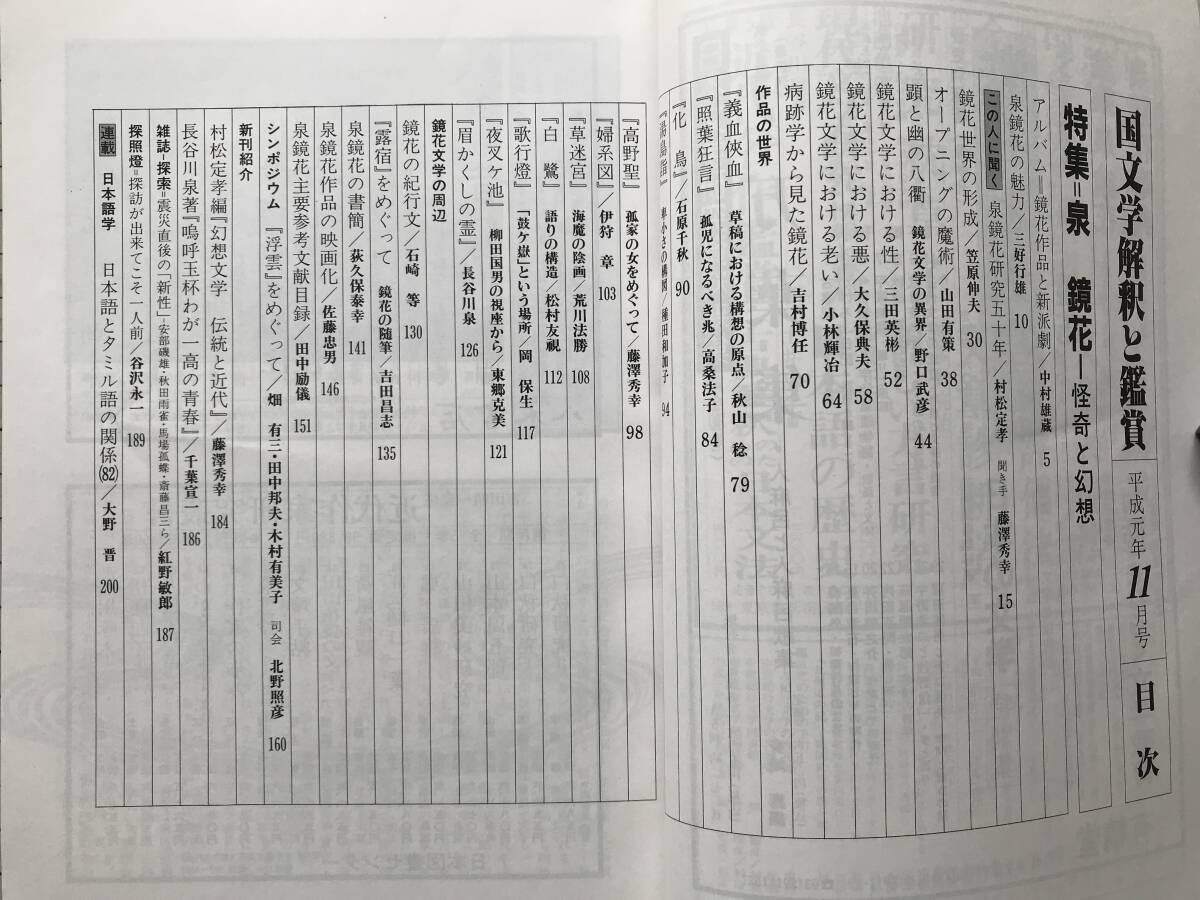 国文学解釈と鑑賞 平成元年11月号 目次
特集=泉 鏡花―怪奇と幻想
アルバム=鏡花作品と新派劇/中村雄蔵 5
泉鏡花の魅力/三好行雄 10
この人に聞く 泉鏡花研究五十年/村松定孝 聞き手 藤澤秀幸 15
鏡花世界の形成/笠原伸夫 30
オープニングの魔術/山田有策 38
顕と幽の八衢 鏡花文学の異界/野口武彦 44
鏡花文学における性/三田英彬 52
鏡花文学における悪/大久保典夫 58
鏡花文学における老い/小林輝冶 64
病跡学から見た鏡花/吉村博任 70
作品の世界
『義血俠血』 草稿における構想の原点/秋山 稔 79
『照葉狂言』 孤児になるべき兆/高桑法子 84
『化 鳥』/石原千秋 90
『湯島詣』 構図/種田和加子 94
『高野聖』 孤家の女をめぐって/藤澤秀幸 98
『婦系図』/伊狩 章 103
『草迷宮』 海魔の陰画/荒川法勝 108
『白 鷺』 語りの構造/松村友視 112
『歌行燈』 「鼓ケ嶽」という場所/岡 保生 117
『夜叉ケ池』 柳田国男の視座から/東郷克美 121
『眉かくしの霊』/長谷川泉 126
鏡花文学の周辺
鏡花の紀行文/石崎 等 130
『露宿』をめぐって 鏡花の随筆/吉田昌志 135
泉鏡花の書簡/荻久保泰幸 141
泉鏡花作品の映画化/佐藤忠男 146
泉鏡花主要参考文献目録/田中励儀 151
シンポジウム 『浮雲』をめぐって/畑 有三・田中邦夫・木村有美子 司会 北野照彦 160
新刊紹介
村松定孝編『幻想文学 伝統と近代』/藤澤秀幸 184
長谷川泉著『嗚呼玉杯わが一高の青春』/千葉宣一 186
雑誌―探索=震災直後の「新性」―安部磯雄・秋田雨雀・馬場孤蝶・斎藤昌三ら/紅野敏郎 187
探照燈=探訪が出来てこそ一人前/谷沢永一 189
連載 日本語学 日本語とタミル語の関係(82)/大野 晋 200
日本図書センター